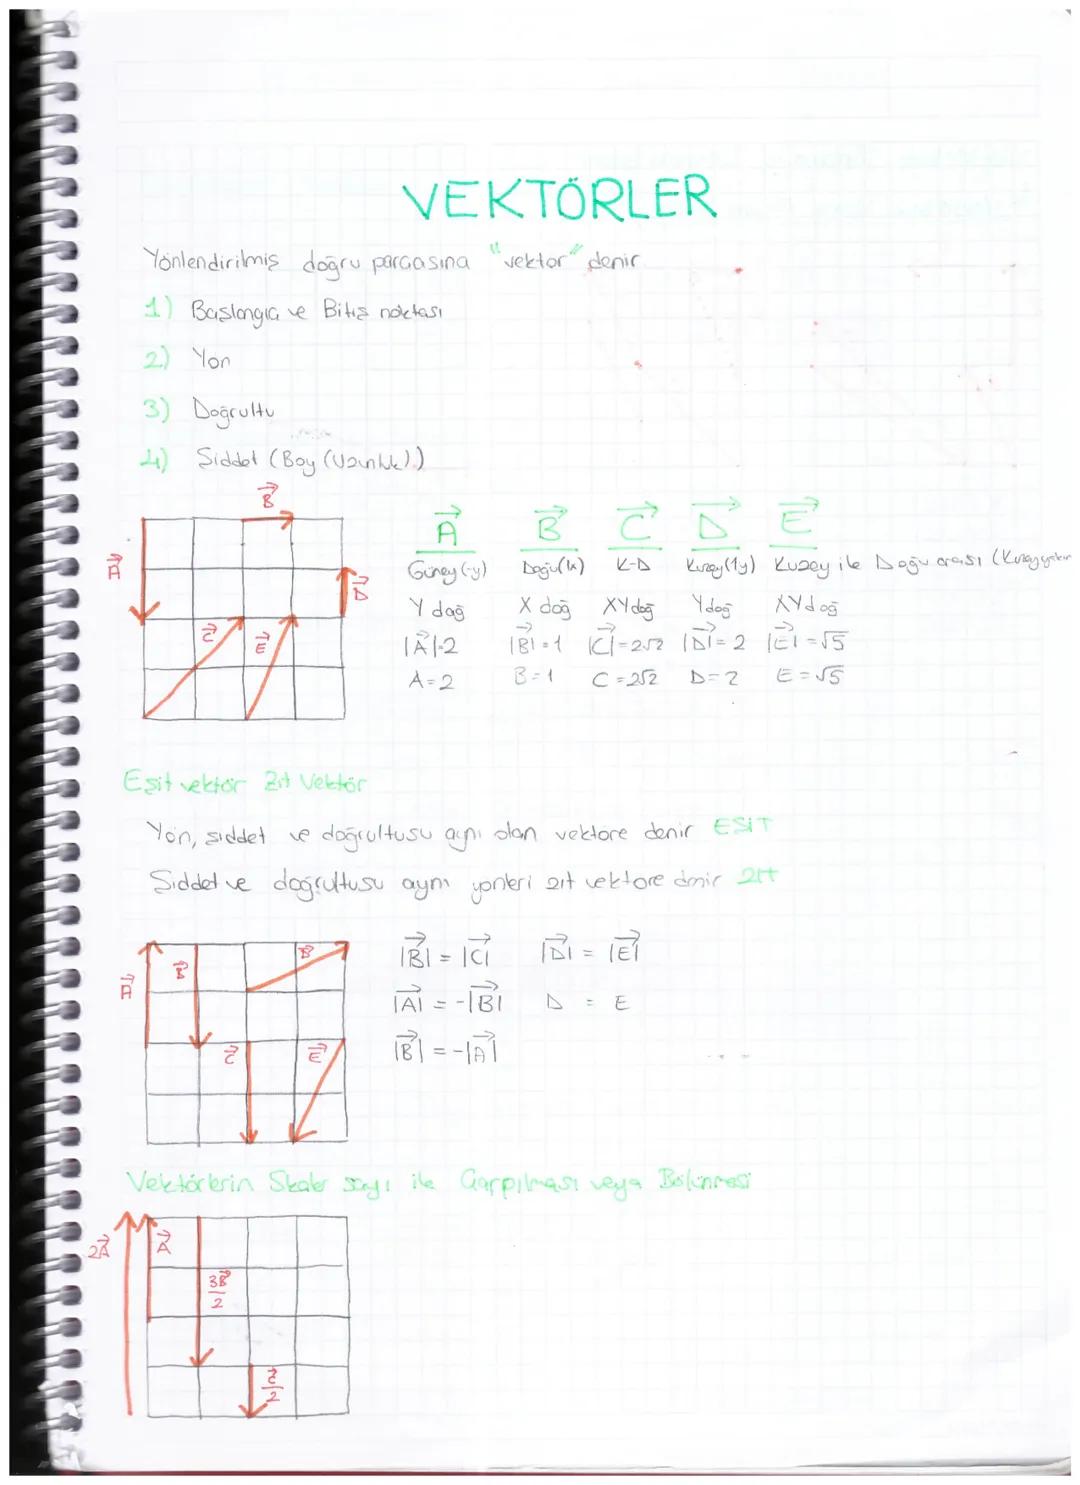 VEKTÖRLER
Yönlendirilmiş doğru parçasına "vektör" denir.
1) Başlangıcı ve Bitiş noktası
2) Yön
3) Doğrultu
4) Şiddet (Boy (Uzunluk))
B
A
D
C
E
A B C D E
Güney (-y) Doğu(+x) K-D Kuzey(+y) Kuzey ile Doğu arası (Kuzey yakın
Y doğ X doğ XY doğ Y doğ XY doğ
|A|=2 |B|=1 |C|=2√2 |D|=2 |E|=√5
A=2 B=1 C=2√2 D=2 E=√5
Eşit vektör Zıt Vektör
Yön, şiddet ve doğrultusu aynı olan vektöre denir EŞİT
Şiddet ve doğrultusu aynı yönleri zıt vektöre denir zıt
A
B
D
C
E
|B| = |C| |D| = |E|
|A| = -|B| D = E
|B| = -|A|
Vektörlerin Skaler sayı ile Çarpılması veya Bölünmesi
2A
A
3B
2
C
2